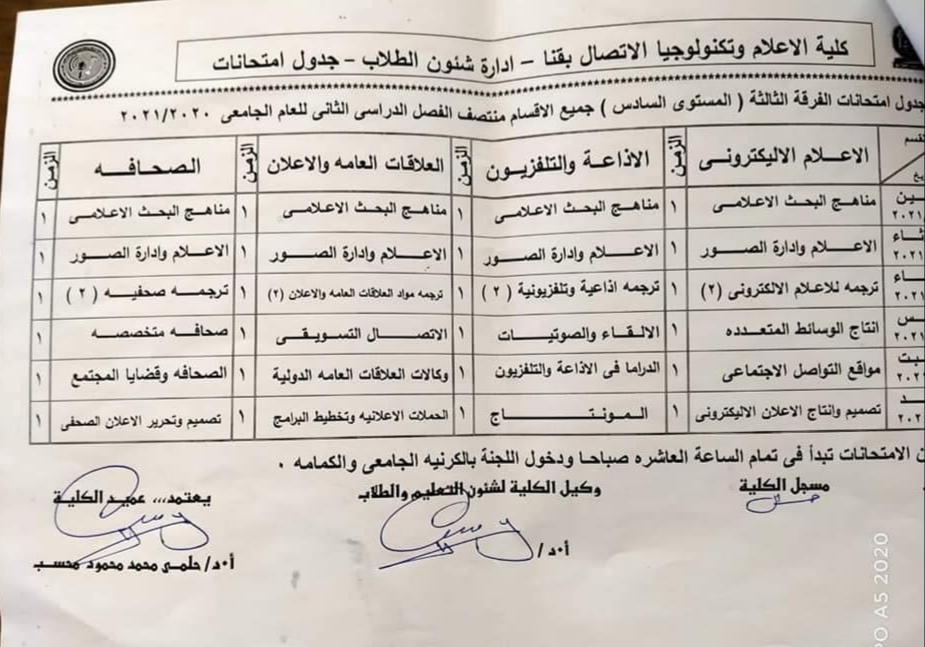 كلية الاعلام وتكنولوجيا الاتصال بقنا – ادارة شئون الطلاب – جدول امتحانات
جدول امتحانات الفرقة الثالثة ( المستوى السادس ) جميع الاقسام منتصف الفصل الدراسى الثانى للعام الجامعى ٢٠٢١/٢٠٢٠
الاعلام الاليكترونى الزمن الاذاعة والتلفزيون الزمن العلاقات العامه والاعلان الزمن الصحافه الزمن
مناهج البحث الاعلامى ١ مناهج البحث الاعلامى ١ مناهج البحث الاعلامى ١ مناهج البحث الاعلامى ١
الاعلام وادارة الصور ١ الاعلام وإدارة الصور ١ الاعلام وإدارة الصور ١ الاعلام وإدارة الصور ١
ترجمه للاعلام الالكترونى (٢) ١ ترجمه اذاعية وتلفزيونية ( ٢ ) ١ ترجمه مواد العلاقات العامه والاعلان (٢) ١ ترجمه صحفيه ( ٢ ) ١
انتاج الوسائط المتعدده ١ الالقاء والصوتيات ١ الاتصال التسويقى ١ صحافه متخصصه ١
مواقع التواصل الاجتماعى ١ الدراما فى الاذاعة والتلفزيون ١ وكالات العلاقات العامه الدولية ١ الصحافه وقضايا المجتمع ١
تصميم وانتاج الاعلان الاليكترونى ١ المونتاج ١ الحملات الاعلانيه وتخطيط البرامج ١ تصميم وتحرير الاعلان الصحفى ١
الامتحانات تبدأ فى تمام الساعة العاشره صباحا ودخول اللجنة بالكرنيه الجامعى والكمامه .
مسجل الكلية وكيل الكلية لشئون التعليم والطلاب يعتمد،،، عميد الكلية
أ.د/ أ.د/ حلمى محمد محمود محسب
PO A5 2020